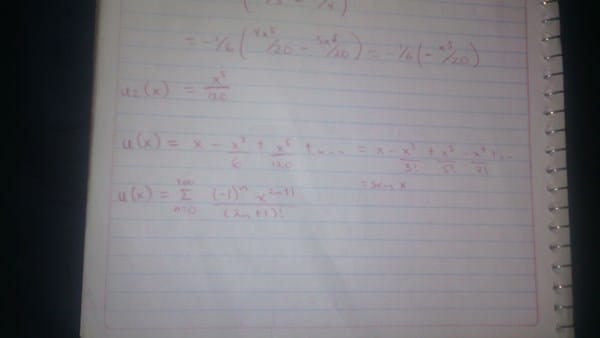 = -1/6 ( 4x⁵/20 - 5x⁵/20 ) = -1/6 ( -x⁵/20 )
u₂(x) = x⁵/120
u(x) = x - x³/6 + x⁵/120 + ... = x - x³/3! + x⁵/5! - x⁷/7! + ...
= sen x
u(x) = Σ n=0 +∞ (-1)ⁿ x²ⁿ⁺¹/(2n+1)!